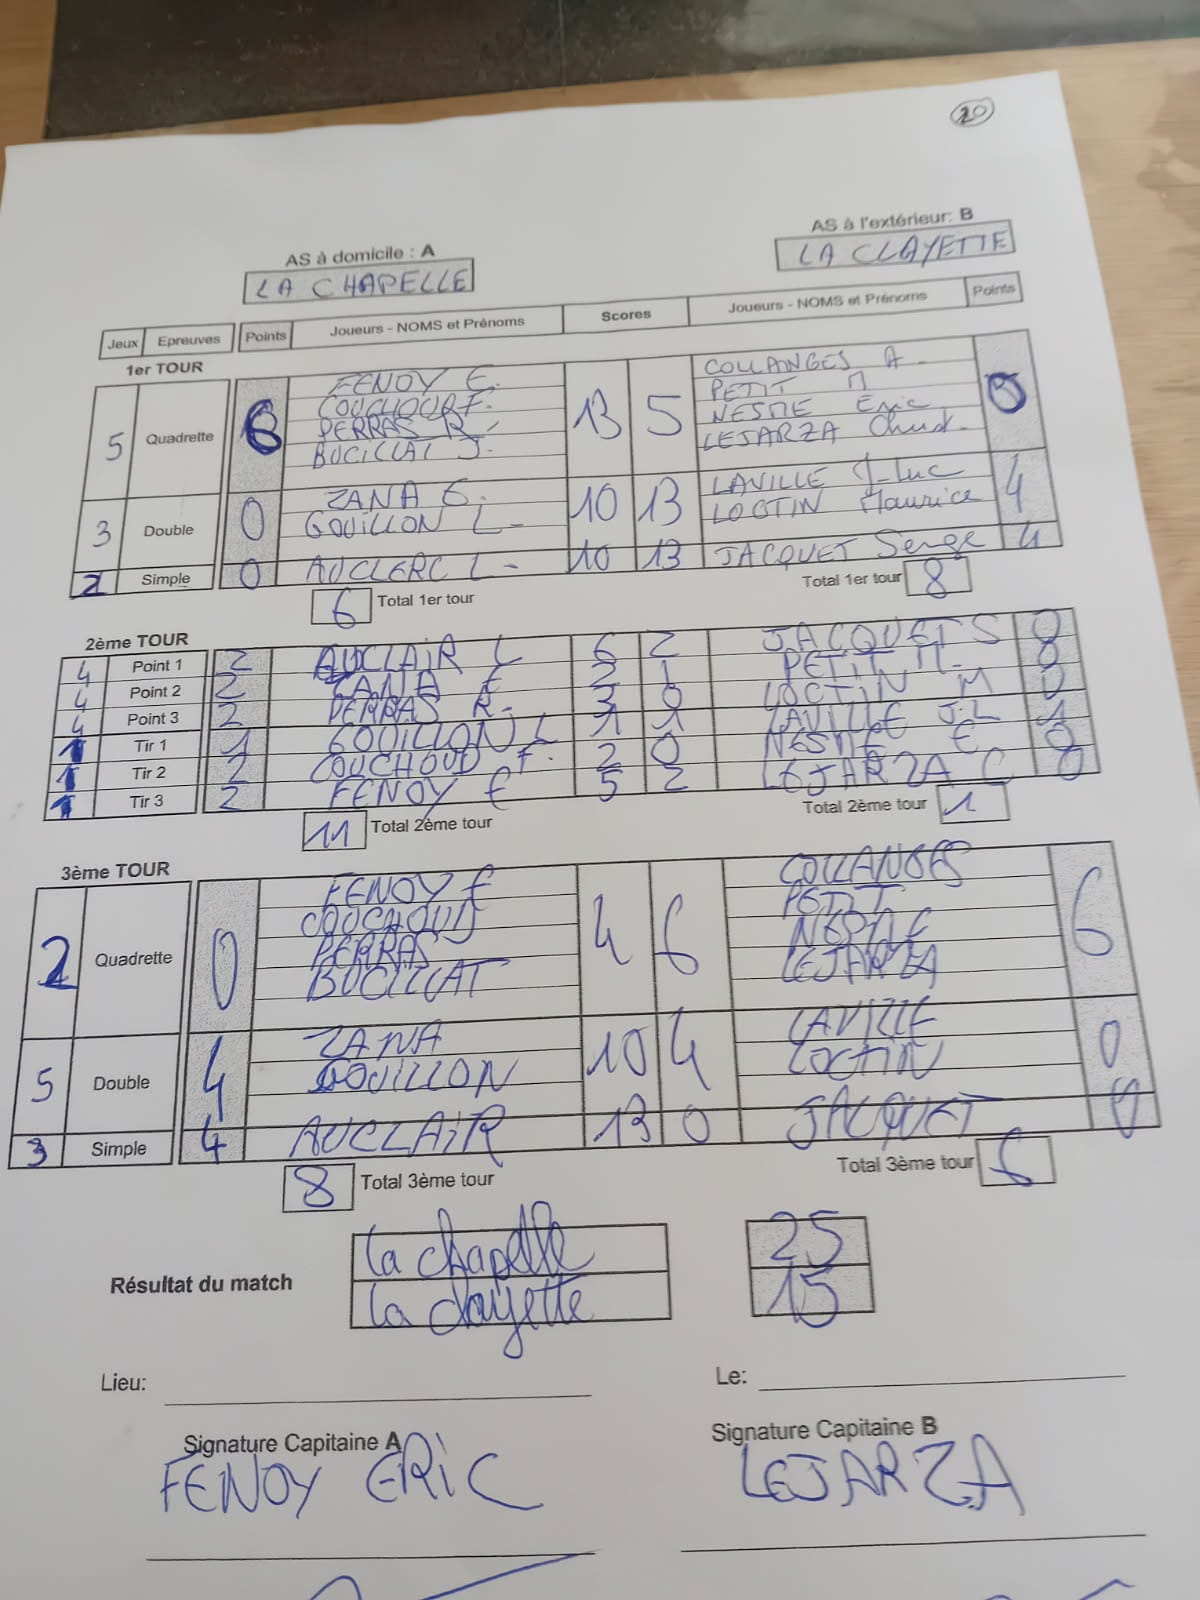 20
AS à domicile : A
AS à l'extérieur: B
LA CHAPELLE
LA CLAYETTE
Jeux Epreuves Points Joueurs - NOMS et Prénoms Scores Joueurs - NOMS et Prénoms Points
1er TOUR
5 Quadrette 6 FENOY E. 13 5 COLLANGES A
COUCHOUD F. PETIT M
PERRAS R. NESME Eric
BUCILLAT J. LEJARZA Christ.
3 Double 0 ZANA E. 10 13 LAVILLE J-Luc 4
GOUILLON L LOCTIN Maurice
2 Simple 0 AUCLERC L 10 13 JACQUET Serge 4
6 Total 1er tour
Total 1er tour 8
2ème TOUR
4 Point 1 2 AUCLAIR L 6 2 JACQUET S 0
4 Point 2 2 ZANA E 2 1 PETIT M. 0
4 Point 3 2 PERRAS R. 3 0 LOCTIN M 0
1 Tir 1 1 GOUILLON L 1 1 LAVILLE J.L 1
1 Tir 2 2 COUCHOUD F. 2 0 NESME E 0
1 Tir 3 2 FENOY E 5 2 LEJARZA C 0
11 Total 2ème tour
Total 2ème tour 1
3ème TOUR
2 Quadrette 0 FENOY E 4 6 COLLANGES 6
COUCHOUD PETIT
PERRAS NESME
BUCILLAT LEJARZA
5 Double 4 ZANA 10 4 LAVILLE 0
GOUILLON LOCTIN
3 Simple 4 AUCLAIR 13 0 JACQUET 0
8 Total 3ème tour
Total 3ème tour 6
Résultat du match
la chapelle 25
la clayette 15
Lieu:
Le:
Signature Capitaine A
Signature Capitaine B
FENOY ERIC
LEJARZA